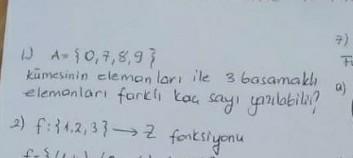 1) A = {0,7,8,9}
kümesinin elemanları ile 3 basamaklı
elemanları farklı kaç sayı yazılabilir?
2) f:{1,2,3} → Z fonksiyonu
7)
a)